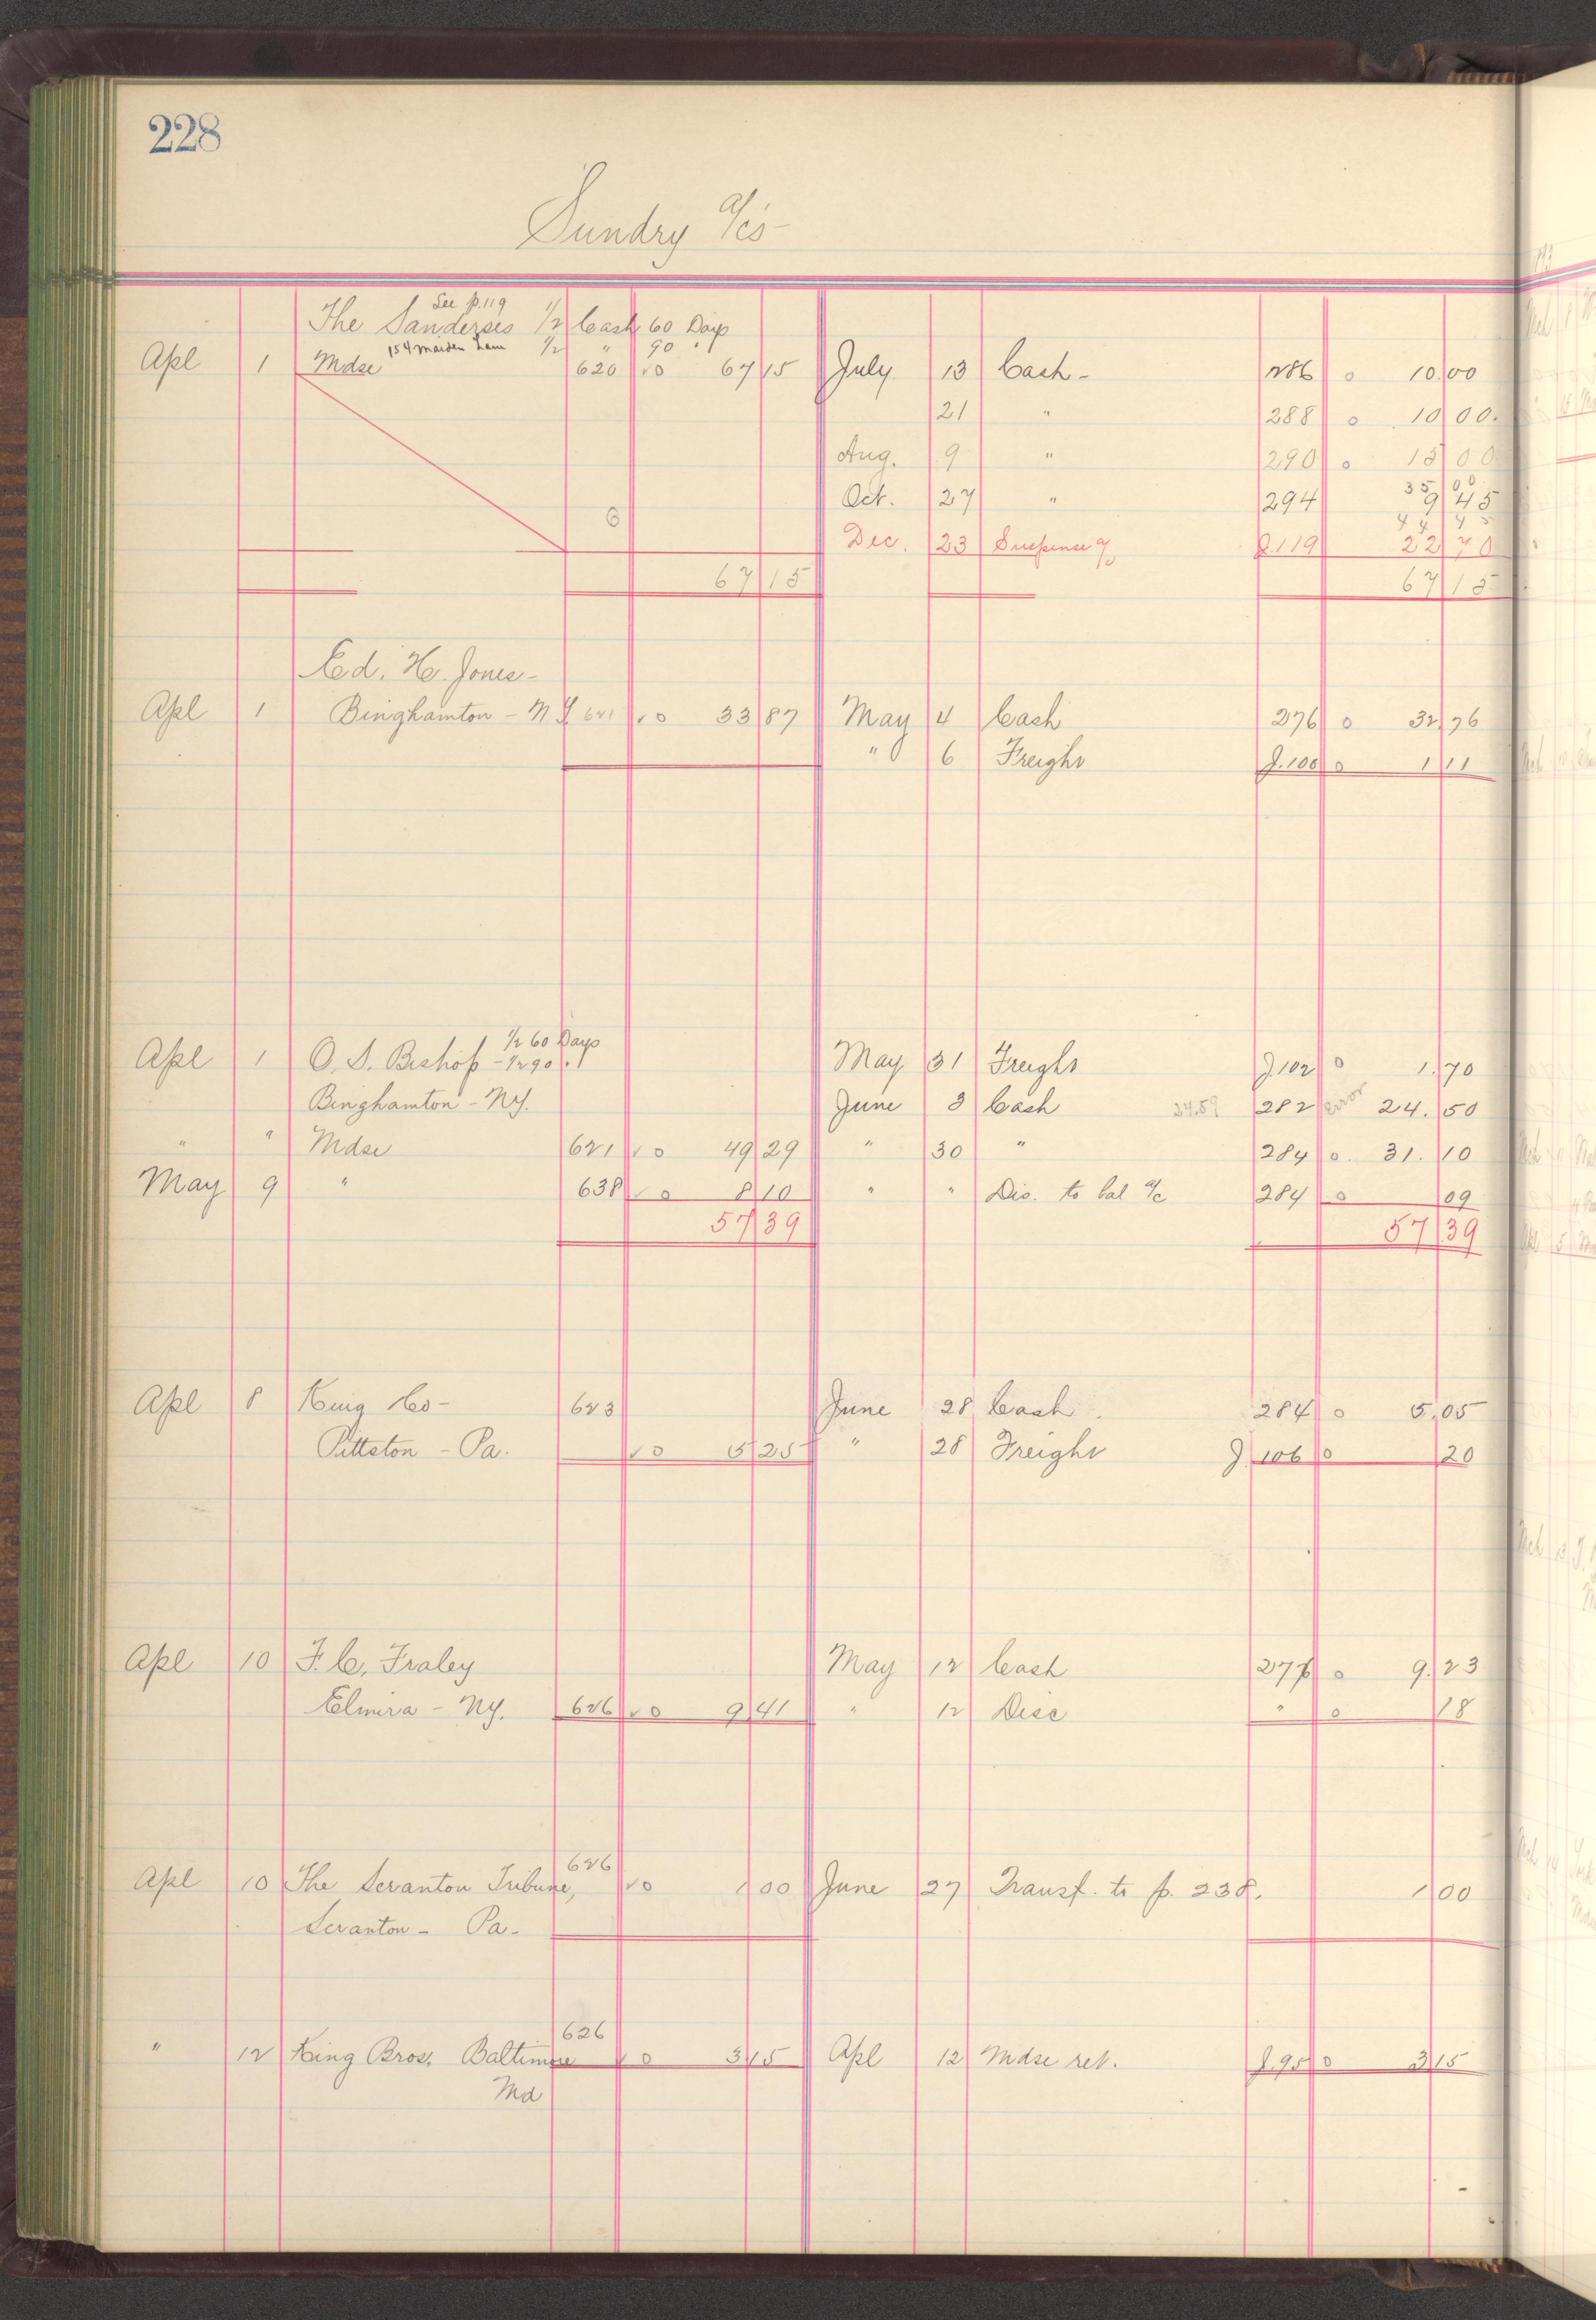 228
Sundry a/cs -
See p. 119
The Sanderses 1/2 Cash 60 Days
154 Maiden Lane 1/2 " 90 "
Apl 1 Mdse 620 10 67 15 July 13 Cash - 286 0 10.00
21 " 288 0 10 00.
Aug. 9 " 290 0 15 00
35 00
Oct. 27 " 294 9 45
44 45
Dec. 23 Suspense a/c J.119 22 70
67 15 67 15
Ed. H. Jones -
Apl 1 Binghamton - N.Y. 621 10 33 87 May 4 Cash 276 0 32 76
" 6 Freight J.100 0 1 11
1/2 60 Days
Apl 1 O. S. Bishop - 1/2 90 " May 31 Freight J.102 0 1.70
Binghamton - N.Y. June 3 Cash 24.59 282 error 24.50
" " Mdse 621 10 49 29 " 30 " 284 0. 31.10
May 9 " 638 10 8 10 " " Dis. to bal a/c 284 0 09
57 39 57 39
Apl 8 King Co - 623 June 28 Cash 284 0 5.05
Pittston - Pa. 10 5 25 " 28 Freight J. 106 0 20
Apl 10 F. C. Fraley May 12 Cash 277 0 9.23
Elmira - N.Y. 626 10 9 41 " 12 Disc " 0 18
626
Apl 10 The Scranton Tribune, 10 1 00 June 27 Transf. to p. 238. 1 00
Scranton - Pa -
626
" 12 King Bros. Baltimore 10 3 15 Apl 12 Mdse ret. J.95 0 3 15
Md